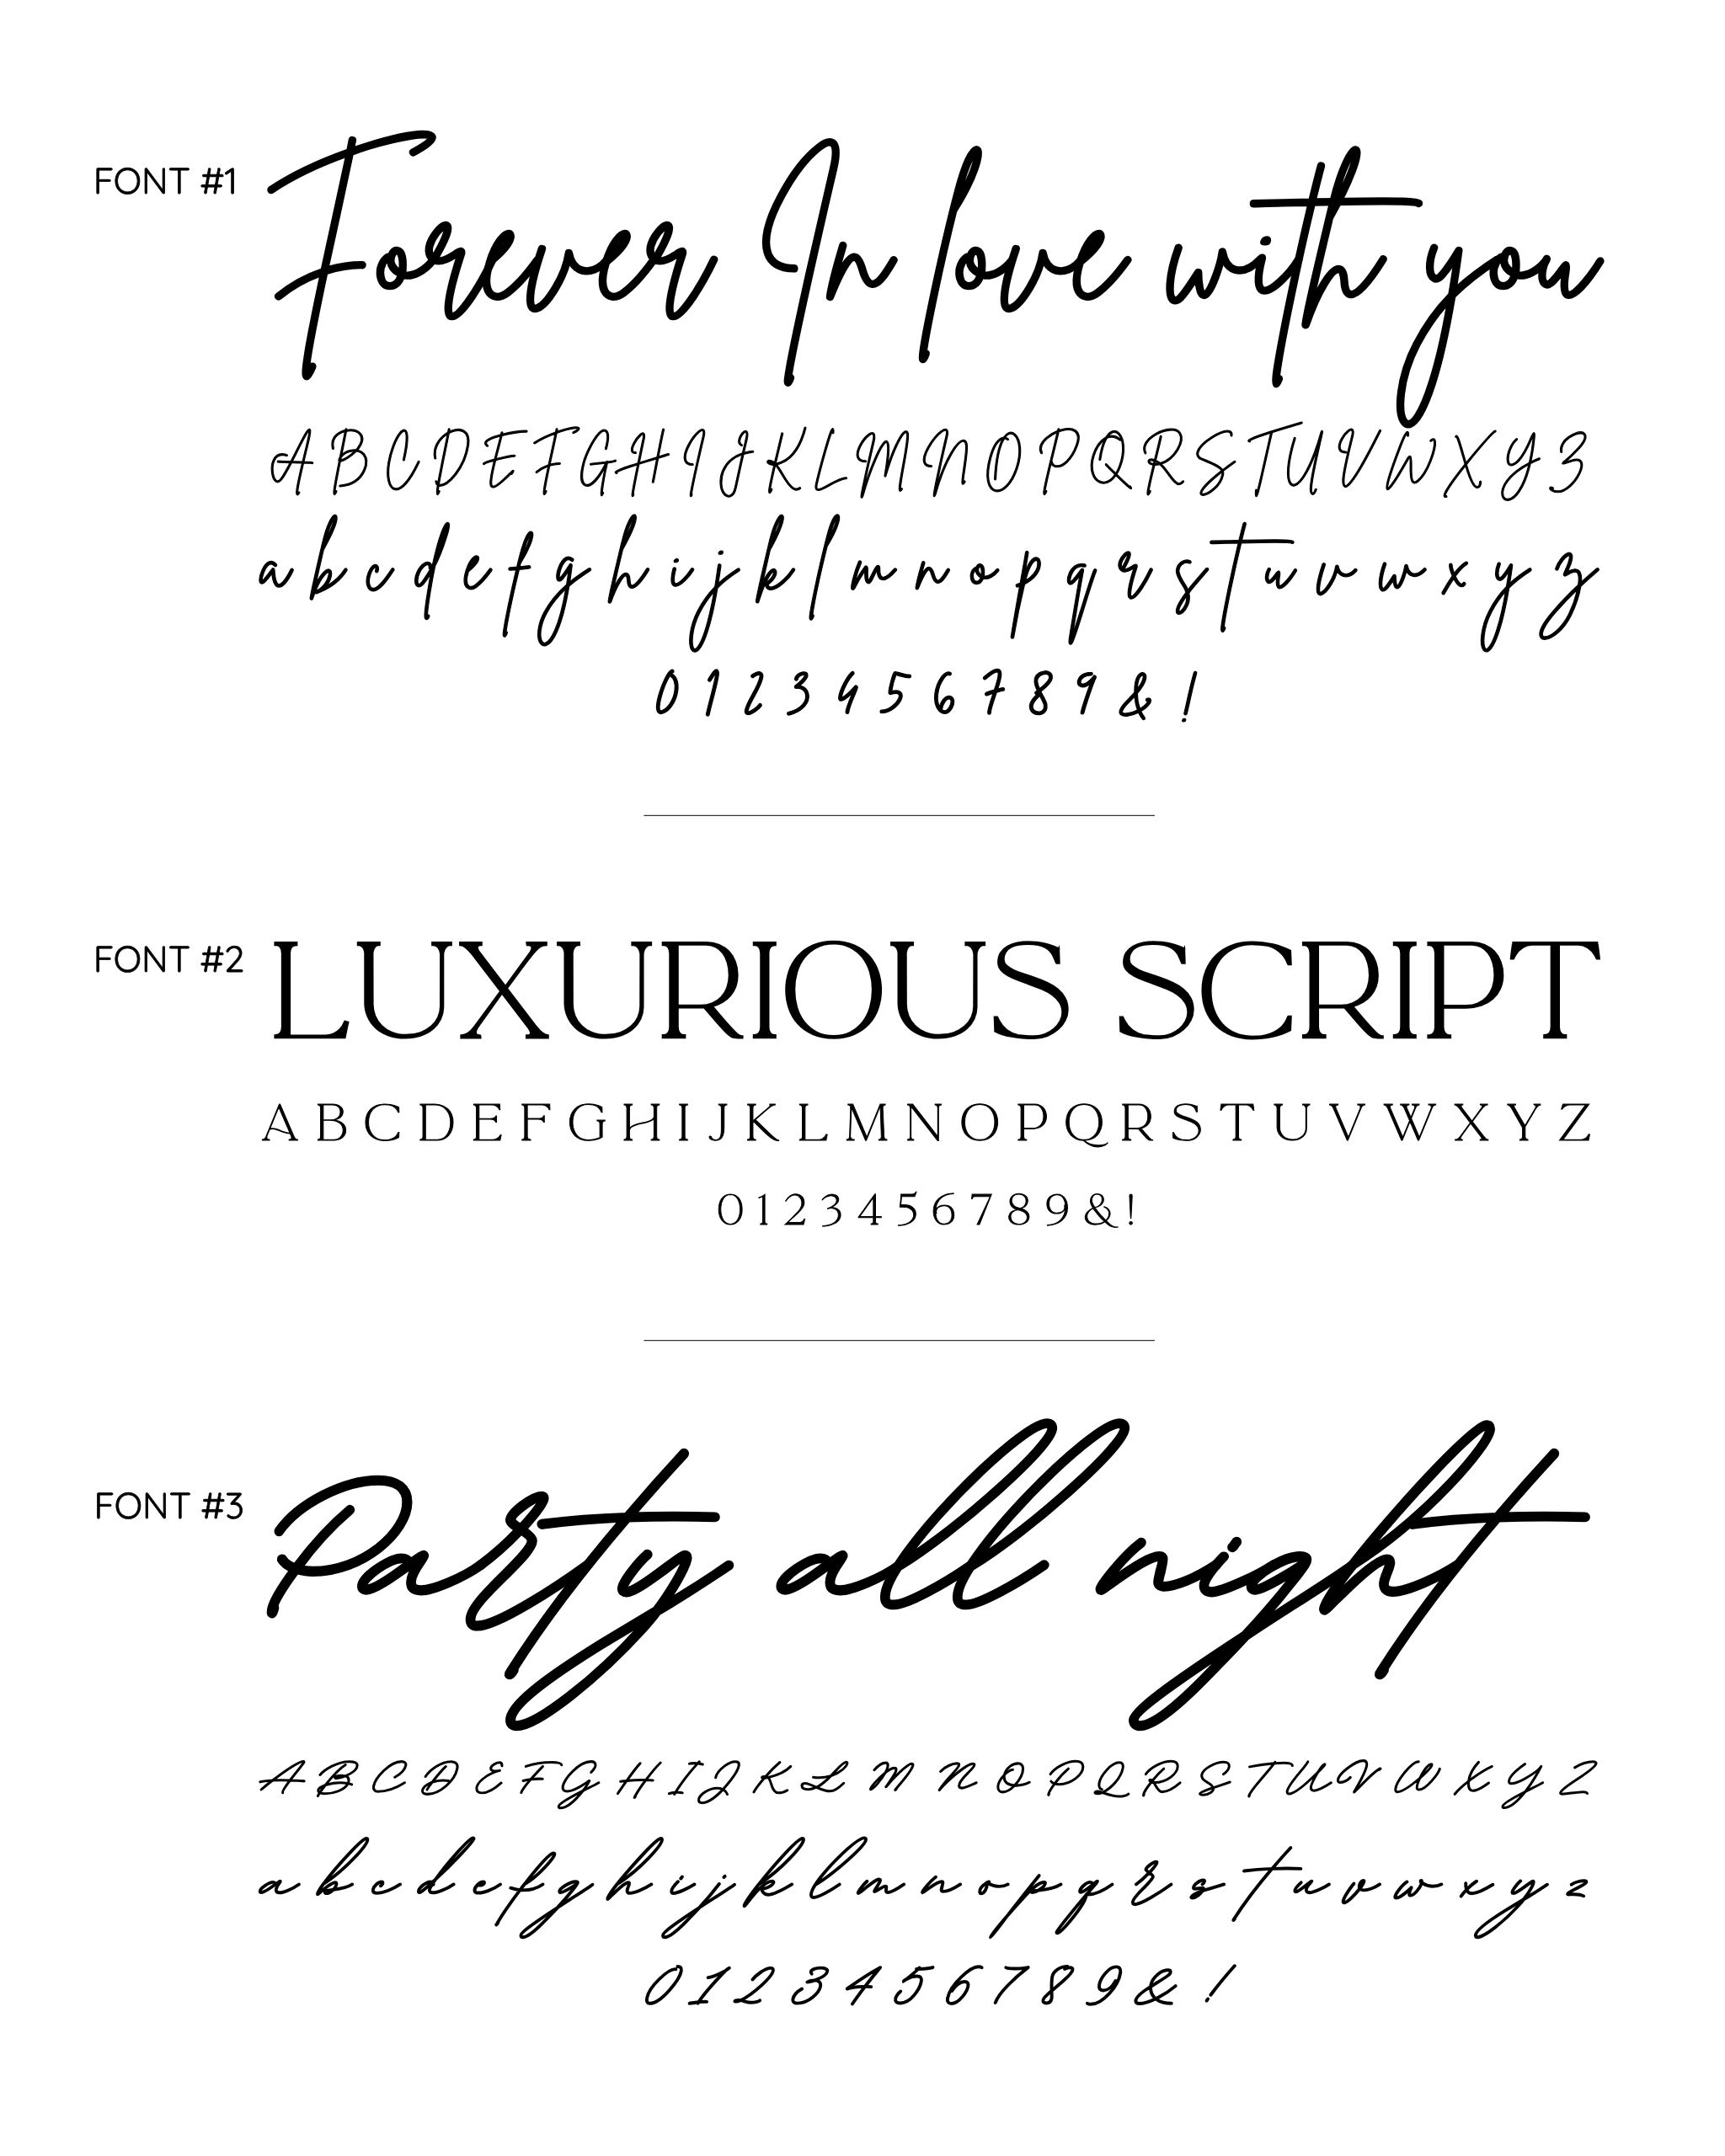 FONT #1
Forever In love with you
A B C D E F G H I J K L M N O P Q R S T U V W X Y Z
a b c d e f g h i j k l m n o p q r s t u v w x y z
0 1 2 3 4 5 6 7 8 9 & !
FONT #2
LUXURIOUS SCRIPT
A B C D E F G H I J K L M N O P Q R S T U V W X Y Z
0 1 2 3 4 5 6 7 8 9 & !
FONT #3
Party all night
A B C D E F G H I J K L M N O P Q R S T U V W X Y Z
a b c d e f g h i j k l m n o p q r s t u v w x y z
0 1 2 3 4 5 6 7 8 9 & !